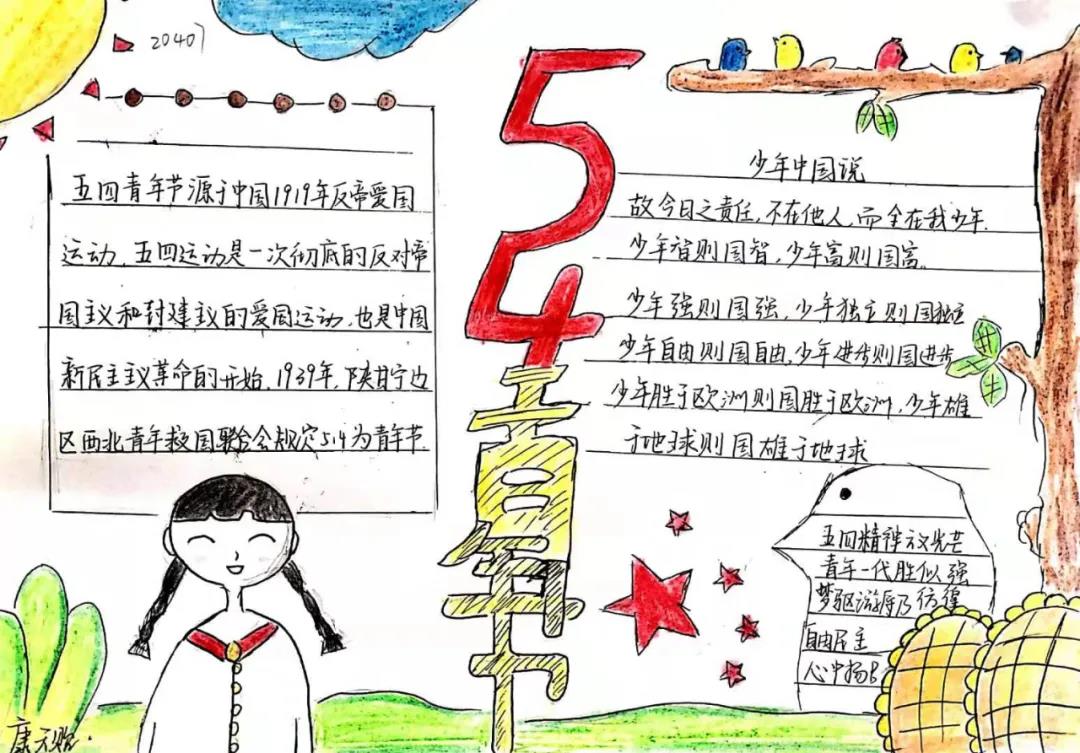 20407
五四青年节源于中国1919年反帝爱国
运动，五四运动是一次彻底的反对帝
国主义和封建主义的爱国运动，也是中国
新民主主义革命的开始。1939年，陕甘宁边
区西北青年救国联合会规定5.4为青年节
54
青年节
少年中国说
故今日之责任，不在他人，而全在我少年.
少年智则国智，少年富则国富。
少年强则国强，少年独立则国独立
少年自由则国自由，少年进步则国进步
少年胜于欧洲则国胜于欧洲，少年雄
于地球则国雄于地球
五四精神放光芒
青年一代胜似强
梦驱
彷徨
自由民主
心中扬
康天